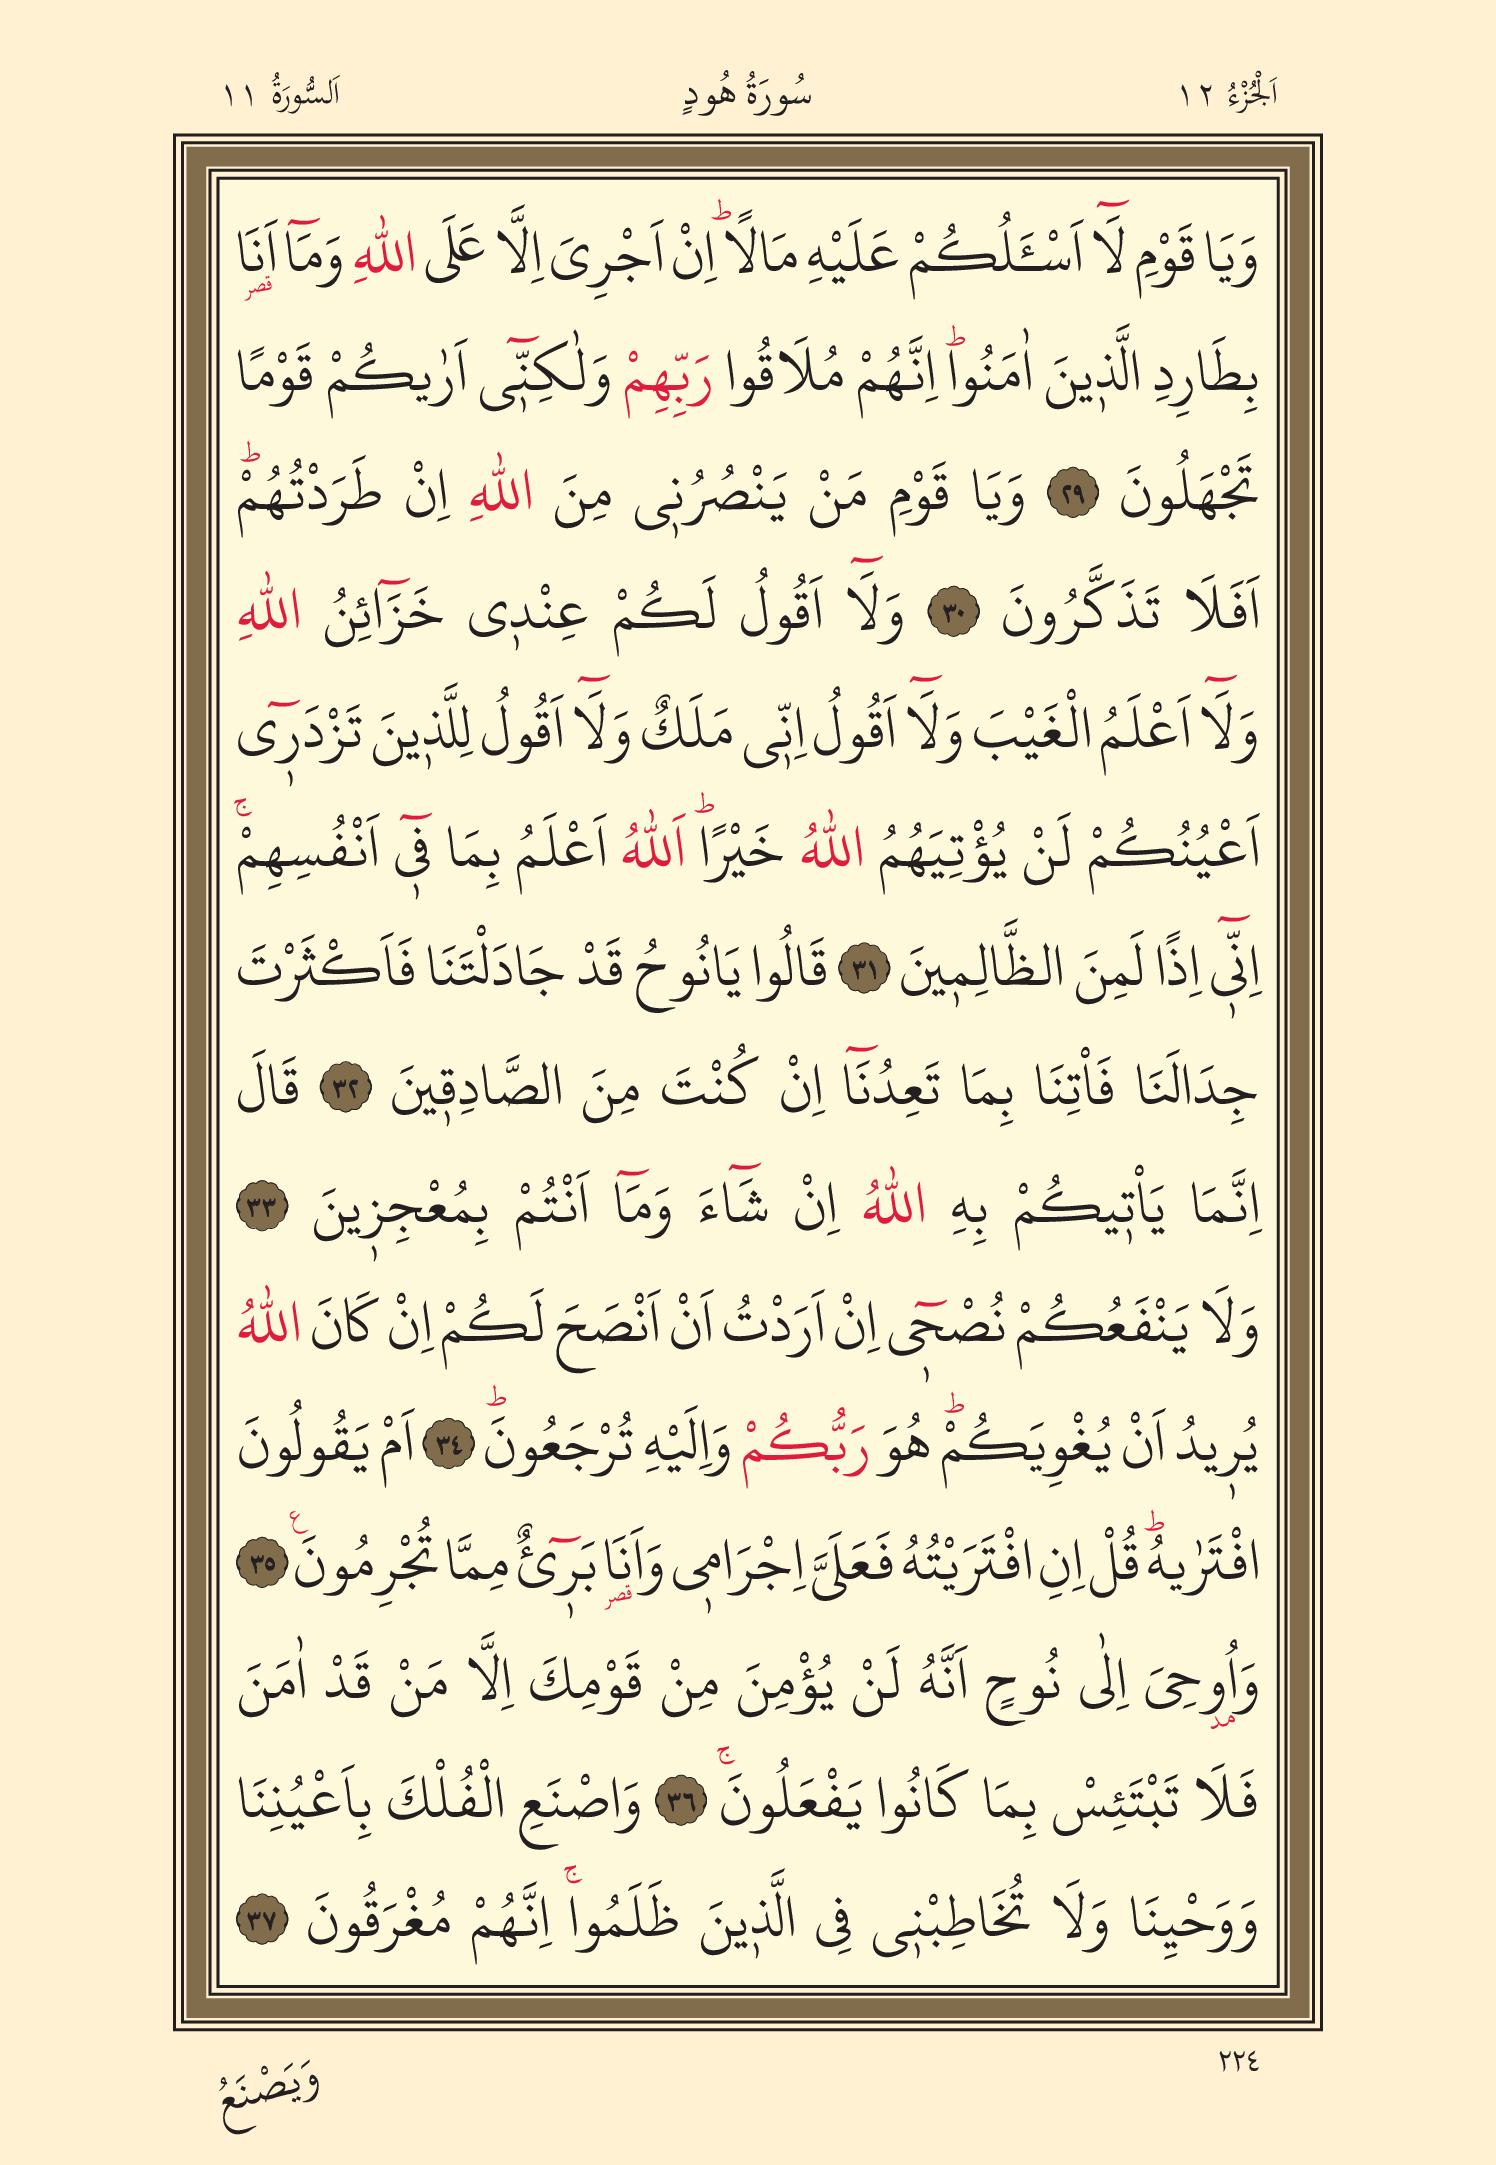 اَلْجُزْءُ ١٢ سُورَةُ هُودٍ اَلسُّورَةُ ١١
وَيَا قَوْمِ لَٓا اَسْـَٔلُكُمْ عَلَيْهِ مَالًاۜ اِنْ اَجْرِىَ اِلَّا عَلَى اللّٰهِ وَمَٓا اَنَا۬
قصر
بِطَارِدِ الَّذ۪ينَ اٰمَنُواۜ اِنَّهُمْ مُلَاقُوا رَبِّهِمْ وَلٰكِنّ۪ٓى اَرٰيكُمْ قَوْمًا
تَجْهَلُونَ ﴿٢٩﴾ وَيَا قَوْمِ مَنْ يَنْصُرُن۪ى مِنَ اللّٰهِ اِنْ طَرَدْتُهُمْۜ
اَفَلَا تَذَكَّرُونَ ﴿٣٠﴾ وَلَٓا اَقُولُ لَكُمْ عِنْد۪ى خَزَٓائِنُ اللّٰهِ
وَلَٓا اَعْلَمُ الْغَيْبَ وَلَٓا اَقُولُ اِنّ۪ى مَلَكٌ وَلَٓا اَقُولُ لِلَّذ۪ينَ تَزْدَر۪ٓى
اَعْيُنُكُمْ لَنْ يُؤْتِيَهُمُ اللّٰهُ خَيْرًاۜ اَللّٰهُ اَعْلَمُ بِمَا ف۪ٓى اَنْفُسِهِمْۚ
اِنّ۪ٓى اِذًا لَمِنَ الظَّالِم۪ينَ ﴿٣١﴾ قَالُوا يَانُوحُ قَدْ جَادَلْتَنَا فَاَكْثَرْتَ
جِدَالَنَا فَاْتِنَا بِمَا تَعِدُنَٓا اِنْ كُنْتَ مِنَ الصَّادِق۪ينَ ﴿٣٢﴾ قَالَ
اِنَّمَا يَاْت۪يكُمْ بِهِ اللّٰهُ اِنْ شَٓاءَ وَمَٓا اَنْتُمْ بِمُعْجِز۪ينَ ﴿٣٣﴾
وَلَا يَنْفَعُكُمْ نُصْح۪ٓى اِنْ اَرَدْتُ اَنْ اَنْصَحَ لَكُمْ اِنْ كَانَ اللّٰهُ
يُر۪يدُ اَنْ يُغْوِيَكُمْۜ هُوَ رَبُّكُمْ وَاِلَيْهِ تُرْجَعُونَۜ ﴿٣٤﴾ اَمْ يَقُولُونَ
افْتَرٰيهُۜ قُلْ اِنِ افْتَرَيْتُهُ فَعَلَىَّ اِجْرَام۪ى وَاَنَا۬ بَر۪ٓىءٌ مِمَّا تُجْرِمُونَ۟ ﴿٣٥﴾
قصر
وَاُو۫حِىَ اِلٰى نُوحٍ اَنَّهُ لَنْ يُؤْمِنَ مِنْ قَوْمِكَ اِلَّا مَنْ قَدْ اٰمَنَ
مد
فَلَا تَبْتَئِسْ بِمَا كَانُوا يَفْعَلُونَۚ ﴿٣٦﴾ وَاصْنَعِ الْفُلْكَ بِاَعْيُنِنَا
وَوَحْيِنَا وَلَا تُخَاطِبْن۪ى فِى الَّذ۪ينَ ظَلَمُواۚ اِنَّهُمْ مُغْرَقُونَ ﴿٣٧﴾
٢٢٤
وَيَصْنَعُ